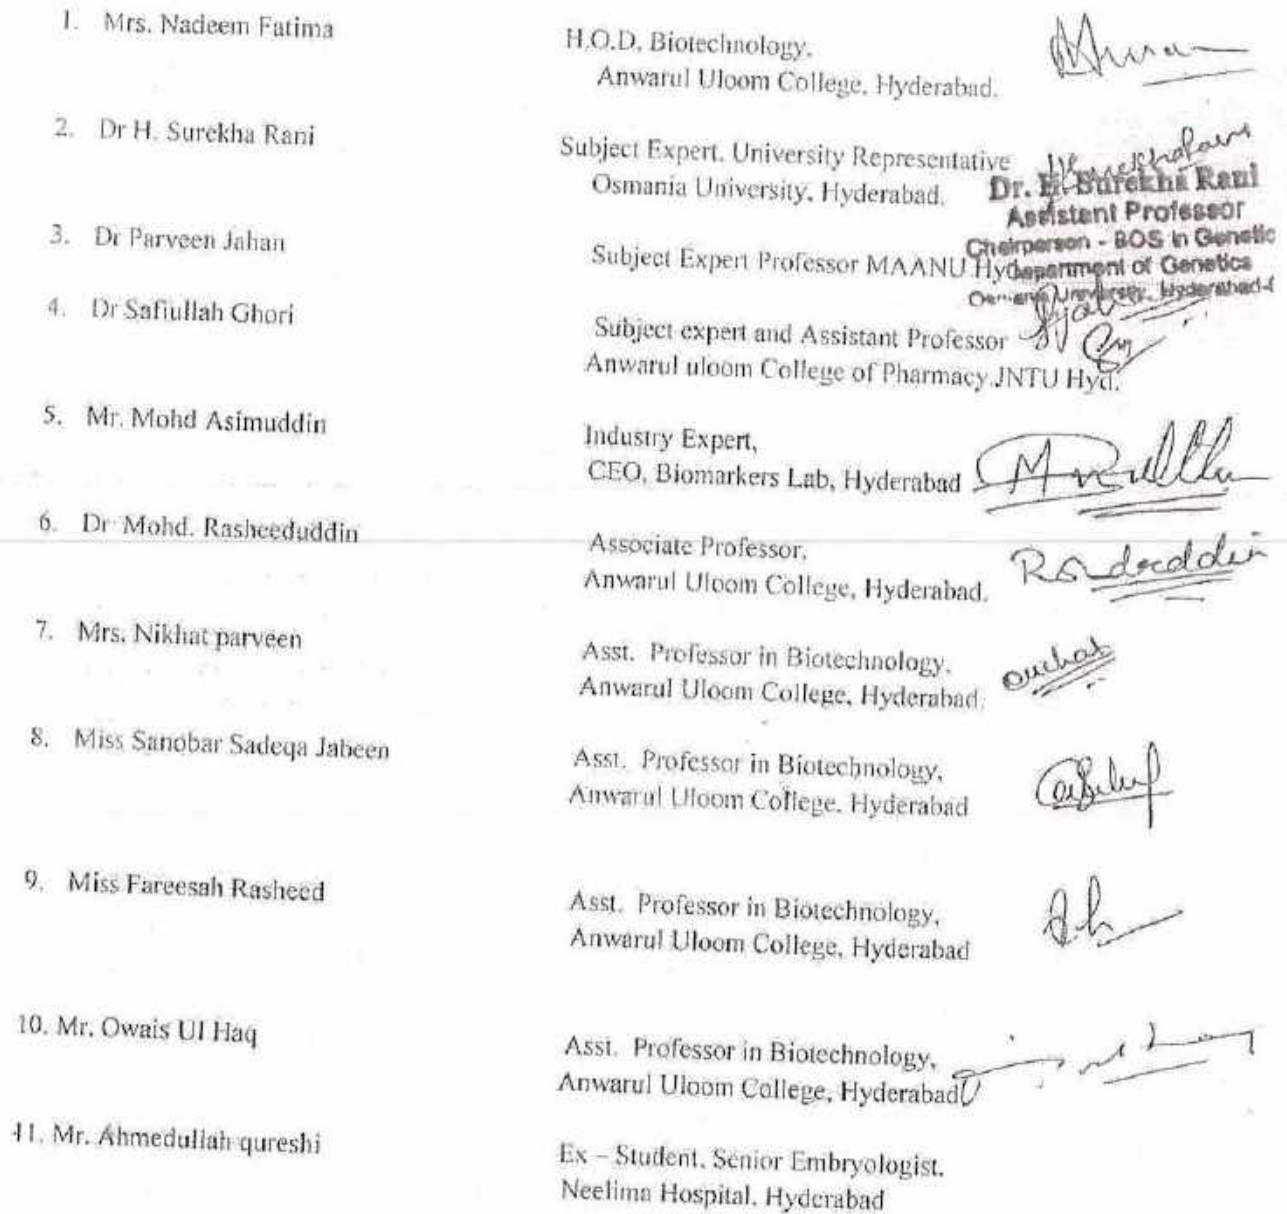 1. Mrs. Nadeem Fatima
H.O.D, Biotechnology.
Anwarul Uloom College, Hyderabad.
2. Dr H. Surekha Rani
Subject Expert. University Representative
Osmania University, Hyderabad.
Dr. H. Surekha Rani
Assistent Professor
Chairperson - BOS in Genetic
Department of Genetics
Osmania University, Hyderabad-
3. Dr Parveen Jahan
Subject Expert Professor MAANU Hyd
4. Dr Safiullah Ghori
Subject expert and Assistant Professor
Anwarul uloom College of Pharmacy.JNTU Hyd.
5. Mr. Mohd Asimuddin
Industry Expert,
CEO, Biomarkers Lab, Hyderabad
6. Dr Mohd. Rasheeduddin
Associate Professor.
Anwarul Uloom College, Hyderabad.
7. Mrs. Nikhat parveen
Asst. Professor in Biotechnology.
Anwarul Uloom College, Hyderabad.
8. Miss Sanobar Sadeqa Jabeen
Asst. Professor in Biotechnology,
Anwarul Uloom College. Hyderabad
9. Miss Fareesah Rasheed
Asst. Professor in Biotechnology,
Anwarul Uloom College, Hyderabad
10. Mr. Owais Ul Haq
Asst. Professor in Biotechnology,
Anwarul Uloom College, Hyderabad
11. Mr. Ahmedullah qureshi
Ex – Student. Senior Embryologist.
Neelima Hospital. Hyderabad